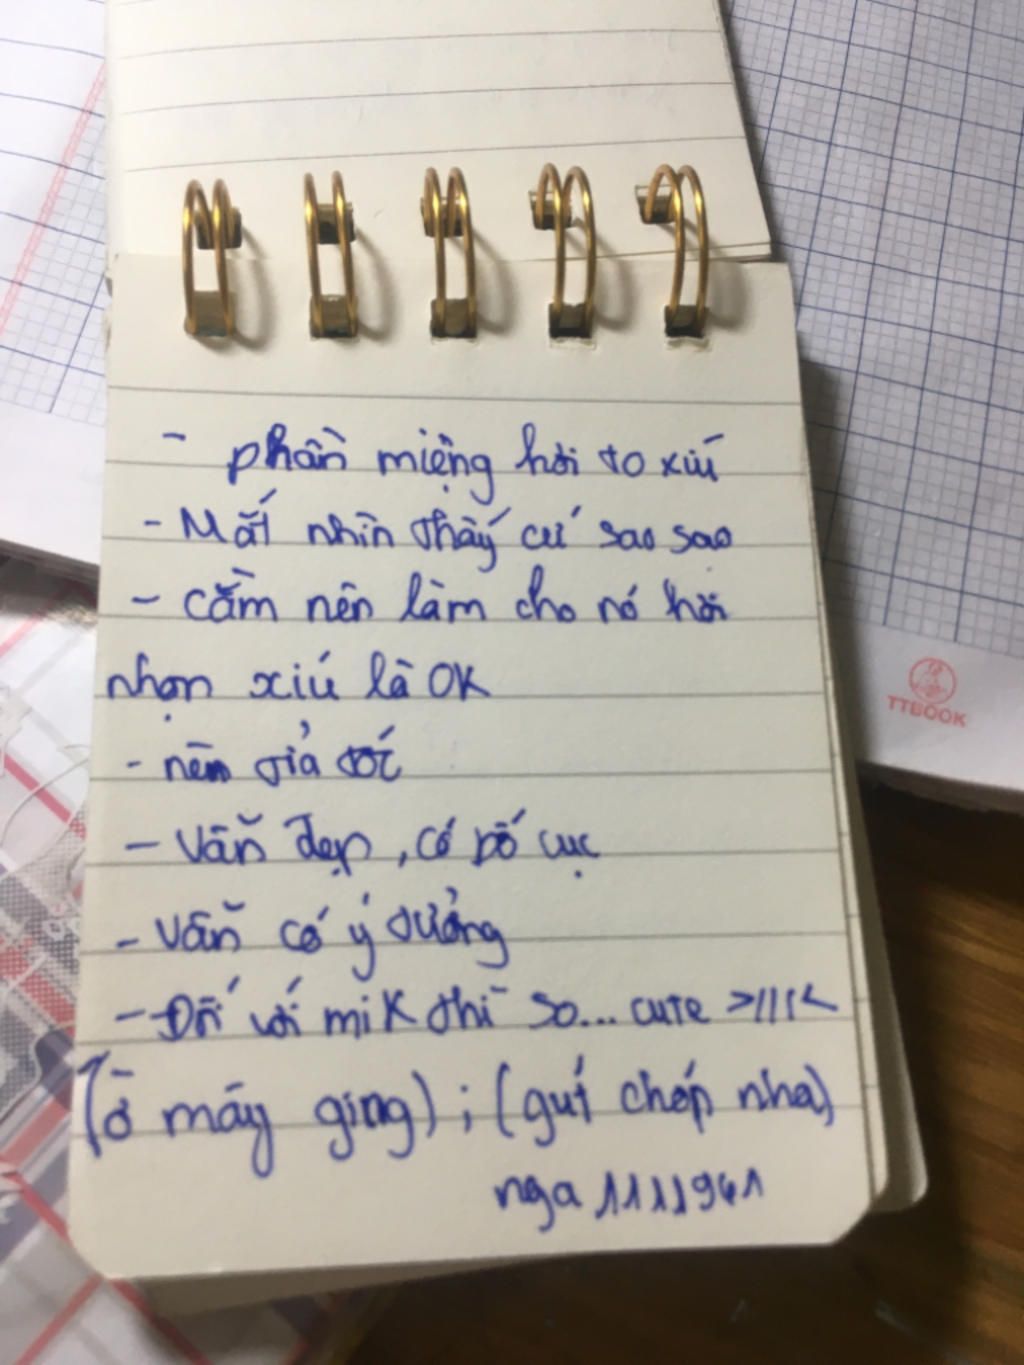 - phần miệng hơi to xíu
- Mắt nhìn thấy cứ sao sao
- cằm nên làm cho nó hơi
nhọn xíu là OK
- nên tỉa tóc
- Vẫn đẹp, có bố cục
- Vẫn có ý tưởng
- Đối với mik thì so... cute >///<
(ở máy ging); (guí chóp nha)
nga 1111941
TTBOOK